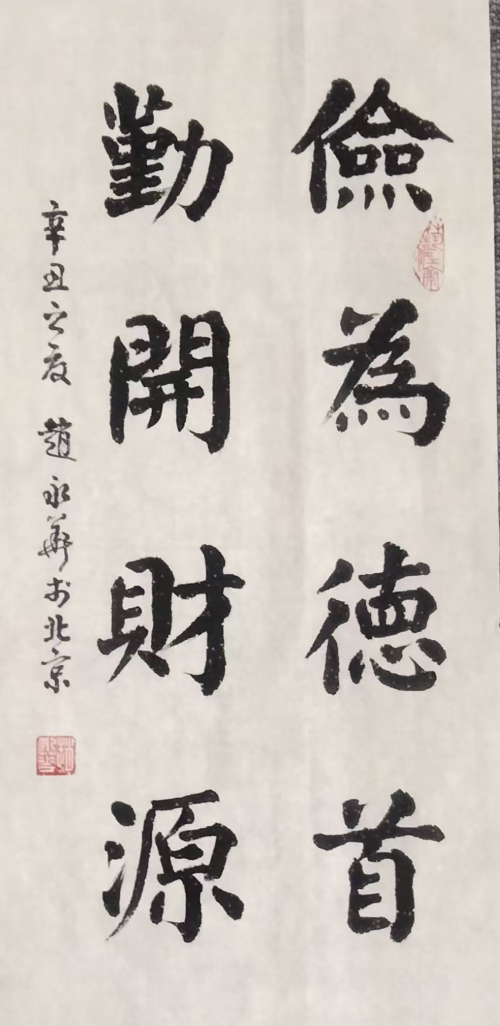 儉為德首
勤開財源
辛丑之夏 趙永華书北京